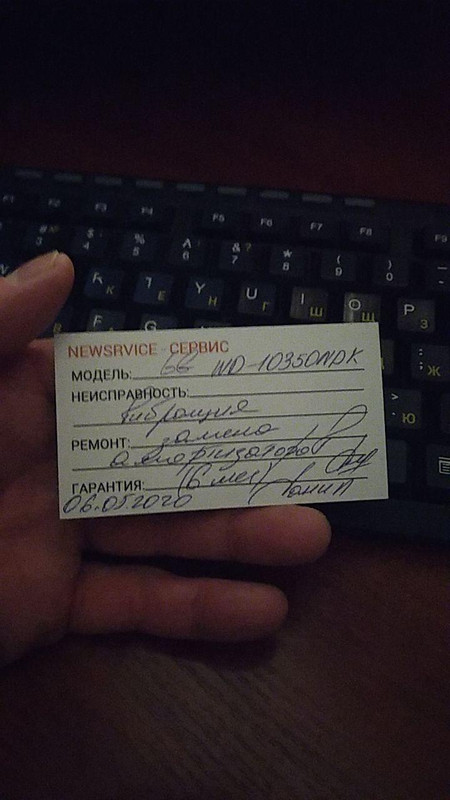 F1 F2 F3 F4 F5 F6 F7 F8 F9
# 3 $ 4 % 5 ^ 6 & 7 ? * 8 ( 9 ) 0
К Е Y Н U Г I Ш O Щ P З
F G Ж
> Ю
NEWSRVICE - СЕРВИС
МОДЕЛЬ: WD-10350NDK
НЕИСПРАВНОСТЬ:
Вибрация
РЕМОНТ: замена
амортизатора
ГАРАНТИЯ: (6 мес)
06.05.2020